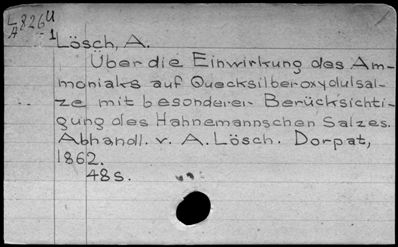 L 826 U
A 1
Lösch, A.
Über die Einwirkung des Am-
moniaks auf Quecksilberoxydulsal-
ze mit besonderer Berücksichti-
gung des Hahnemannschen Salzes.
Abhandl. v. A. Lösch. Dorpat,
1862.
48 s.